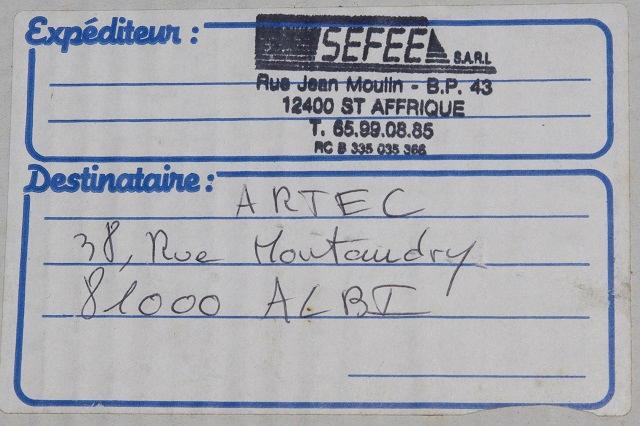 Expéditeur :
SEFEE S.A.R.L
Rue Jean Moulin - B.P. 43
12400 ST AFFRIQUE
T. 65.99.08.85
RC B 335 035 366
Destinataire :
ARTEC
38, Rue Montaudry
81000 ALBI